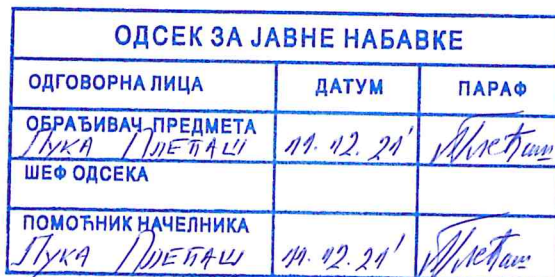 ОДСЕК ЗА ЈАВНЕ НАБАВКЕ
ОДГОВОРНА ЛИЦА ДАТУМ ПАРАФ
ОБРАЂИВАЧ ПРЕДМЕТА
ЛУКА 11.12.21'
ШЕФ ОДСЕКА
ПОМОЋНИК НАЧЕЛНИКА
ЛУКА 11.12.21'